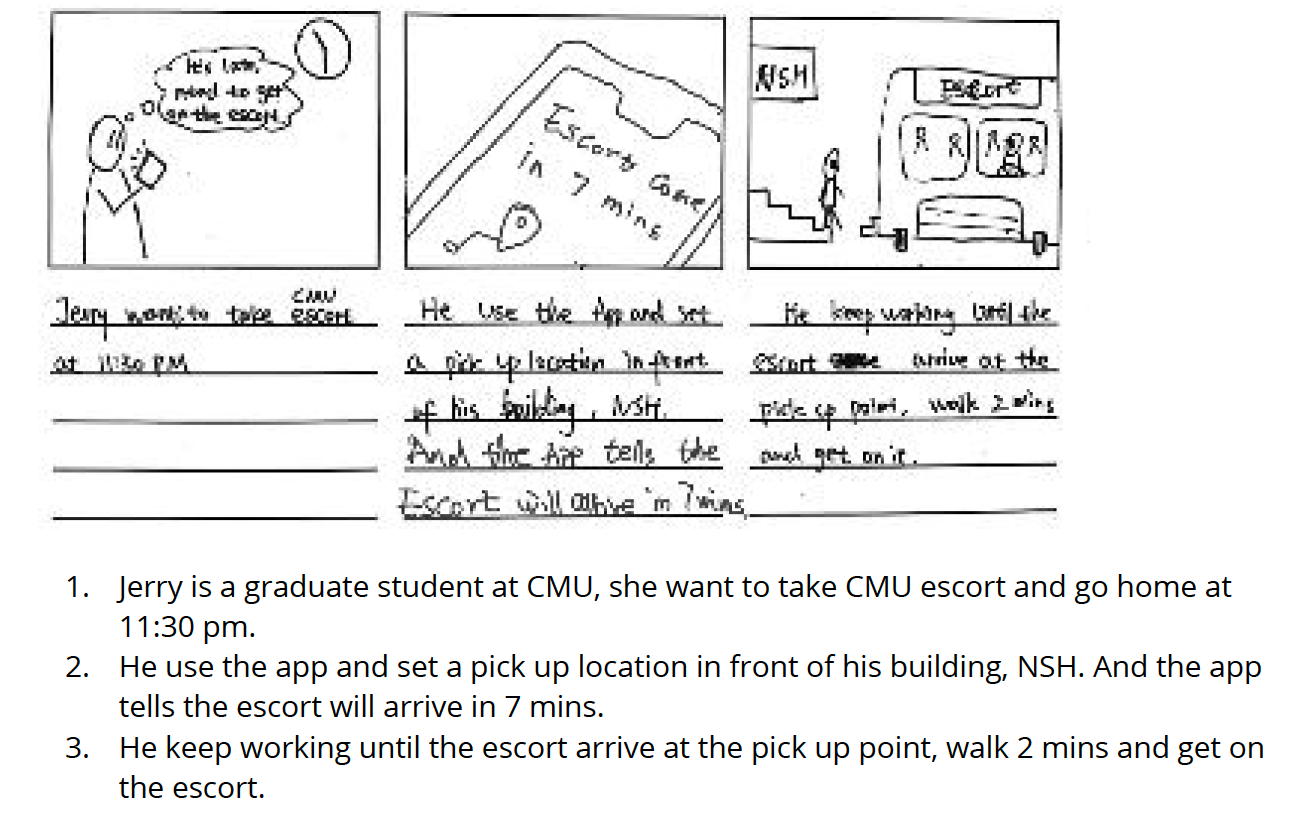 It's late,
need to get
on the escort
Escorts Come
in 7 mins
NSH
Escort
Jerry wants to take CMU escort
at 11:30 PM
He use the App and set
a pick up location in front
of his building, NSH.
And the App tells the
Escort will arrive in 7 mins
He keep working until the
escort arrive at the
pick up point, walk 2 mins
and get on it.
1. Jerry is a graduate student at CMU, she want to take CMU escort and go home at
11:30 pm.
2. He use the app and set a pick up location in front of his building, NSH. And the app
tells the escort will arrive in 7 mins.
3. He keep working until the escort arrive at the pick up point, walk 2 mins and get on
the escort.